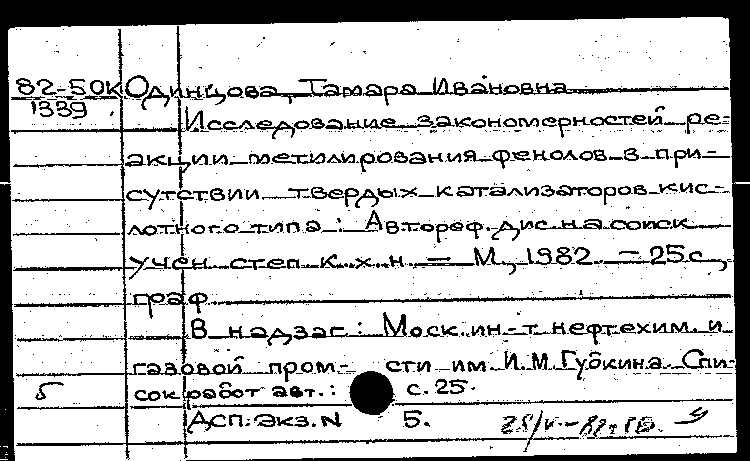 82-50К Одинцова, Тамара Ивановна
1339
Исследование закономерностей ре=
акции метилирования фенолов в при-
сутствии твердых катализаторов кис-
лотного типа : Автореф. дис. на соиск
учен. степ. к. х. н. — М., 1982. — 25с.,
граф.
В надзаг.: Моск. ин-т нефтехим. и
газовой пром- сти им. И.М. Губкина. Спи-
сок работ авт.: с. 25.
5
Асп. Экз. N 5.